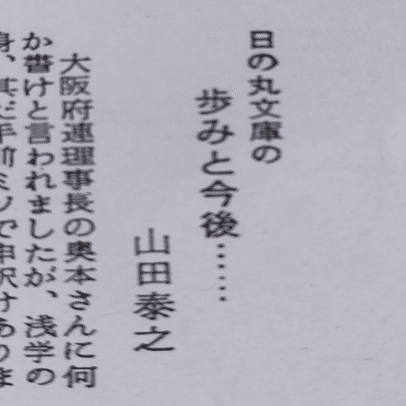 日の丸文庫の
歩みと今後……
山田泰之
大阪府連理事長の奥本さんに何
か書けと言われましたが、浅学の
身、甚だ手前ミソで申訳けありま